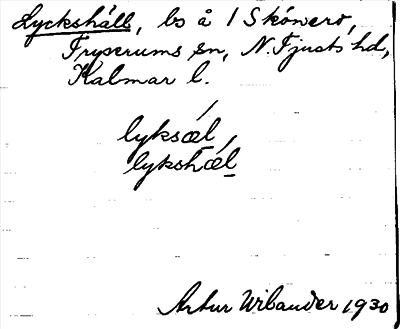 Lyckshäll, bs å 1 Skönero,
Fryserums sn, N. Tjusts hd,
Kalmar l.
lyksæl,
lykshæl
Artur Wilander 1930